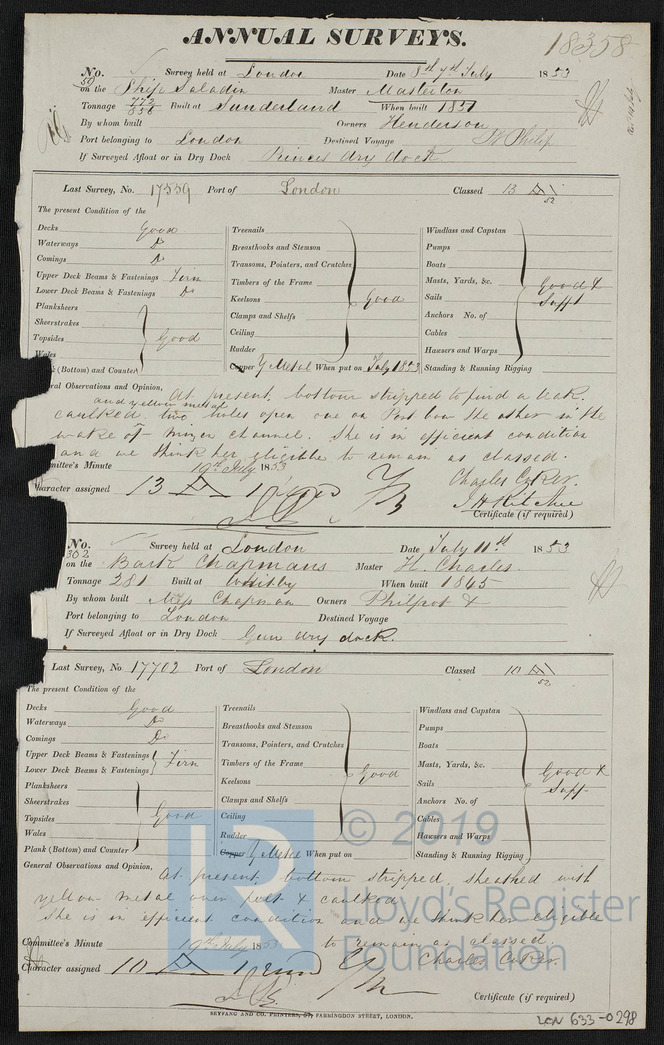 ANNUAL SURVEYS. 18358
No. 50 Survey held at London Date 8th 7th July 1853
on the Ship Saladin Master Masterton
Tonnage 772/858 Built at Sunderland When built 1851
By whom built Owners Henderson
Port belonging to London Destined Voyage Pt Philip
If Surveyed Afloat or in Dry Dock Princes dry dock
Last Survey, No. 17559 Port of London Classed 13 A 1
52
The present Condition of the
Decks Good
Waterways Do
Comings Do
Upper Deck Beams & Fastenings Firm
Lower Deck Beams & Fastenings Do
Planksheers
Sheerstrakes
Topsides Good
Wales
(Bottom) and Counter
Treenails
Breasthooks and Stemson
Transoms, Pointers, and Crutches
Timbers of the Frame
Keelsons Good
Clamps and Shelfs
Ceiling
Rudder
Copper Y Metal When put on July 1853
Windlass and Capstan
Pumps
Boats
Masts, Yards, &c. Good &
Sails Sufft
Anchors No. of
Cables
Hawsers and Warps
Standing & Running Rigging
ral Observations and Opinion, At present, bottom stripped to find a leak,
and yellow metal
caulked, two holes open one on Port bow the other in the
wake of mizen channel. She is in efficient condition
and we think her eligible to remain as classed.
mittee's Minute 19th July 1853
Charles Coker.
Character assigned 13 A 1
J H Ritchie
Certificate (if required)
No. 302 Survey held at London Date July 11th 1853
on the Bark Chapmans Master H. Charles.
Tonnage 281 Built at Whitby When built 1845
By whom built Chapman Owners Philpot &
Port belonging to London Destined Voyage
If Surveyed Afloat or in Dry Dock Gun dry dock.
Last Survey, No 17702 Port of London Classed 10 A 1
52
The present Condition of the
Decks Good
Waterways Do
Comings Do
Upper Deck Beams & Fastenings Firm
Lower Deck Beams & Fastenings
Planksheers
Sheerstrakes
Topsides Good
Wales
Plank (Bottom) and Counter
Treenails
Breasthooks and Stemson
Transoms, Pointers, and Crutches
Timbers of the Frame
Keelsons Good
Clamps and Shelfs
Ceiling
Rudder
Copper Y Metal When put on
Windlass and Capstan
Pumps
Boats
Masts, Yards, &c. Good &
Sails Suff
Anchors No. of
Cables
Hawsers and Warps
Standing & Running Rigging
General Observations and Opinion, At present, bottom stripped, sheathed with
yellow metal over felt & caulked
She is in efficient condition and we think her eligible
to remain as classed.
Committee's Minute 19th July 1853
Charles Coker.
Character assigned 10 A 1
Certificate (if required)
SEYFANG AND CO. PRINTERS, 57, FARRINGDON STREET, LONDON.
LCN 633-0298
LR © 2019
Lloyd's Register
Foundation